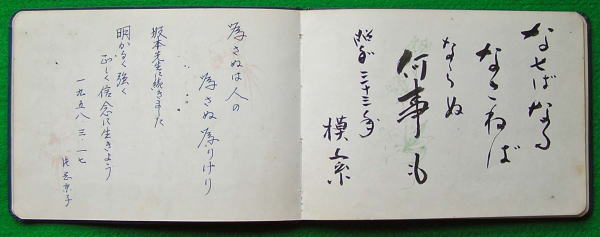 なせばなる
なさねば
ならぬ
何事も
昭和三十三年
為さぬは人の
為さぬ為りけり
坂本先生に続きました
明かるく強く
正しく信念に生きよう
一九五八 三.一七